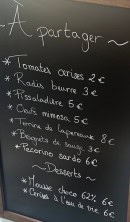 ~ A partager ~
* Tomates cerises 2 €
* Radis beurre 3 €
* Pissaladière 5 €
* Oeufs mimosa 5 €
* Terrine de lapereau 8 €
* Beignets de sauge 3 €
* Pecorino sardo 6 €
~ Desserts ~
* Mousse choco 62% 6 €
* Cerises à l'eau de rose 6 €